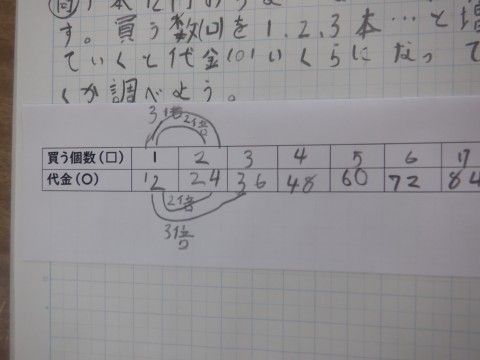 1本12円の
す。買う数(□)を1.2.3本…と増
ていくと代金(○)いくらになって
くか調べよう。
3倍
2倍
買う個数(□) 1 2 3 4 5 6 7
代金(○) 12 24 36 48 60 72 84
2倍
3倍